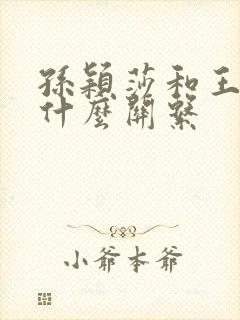 孫穎莎和王
什麼關繫
小爺本爺